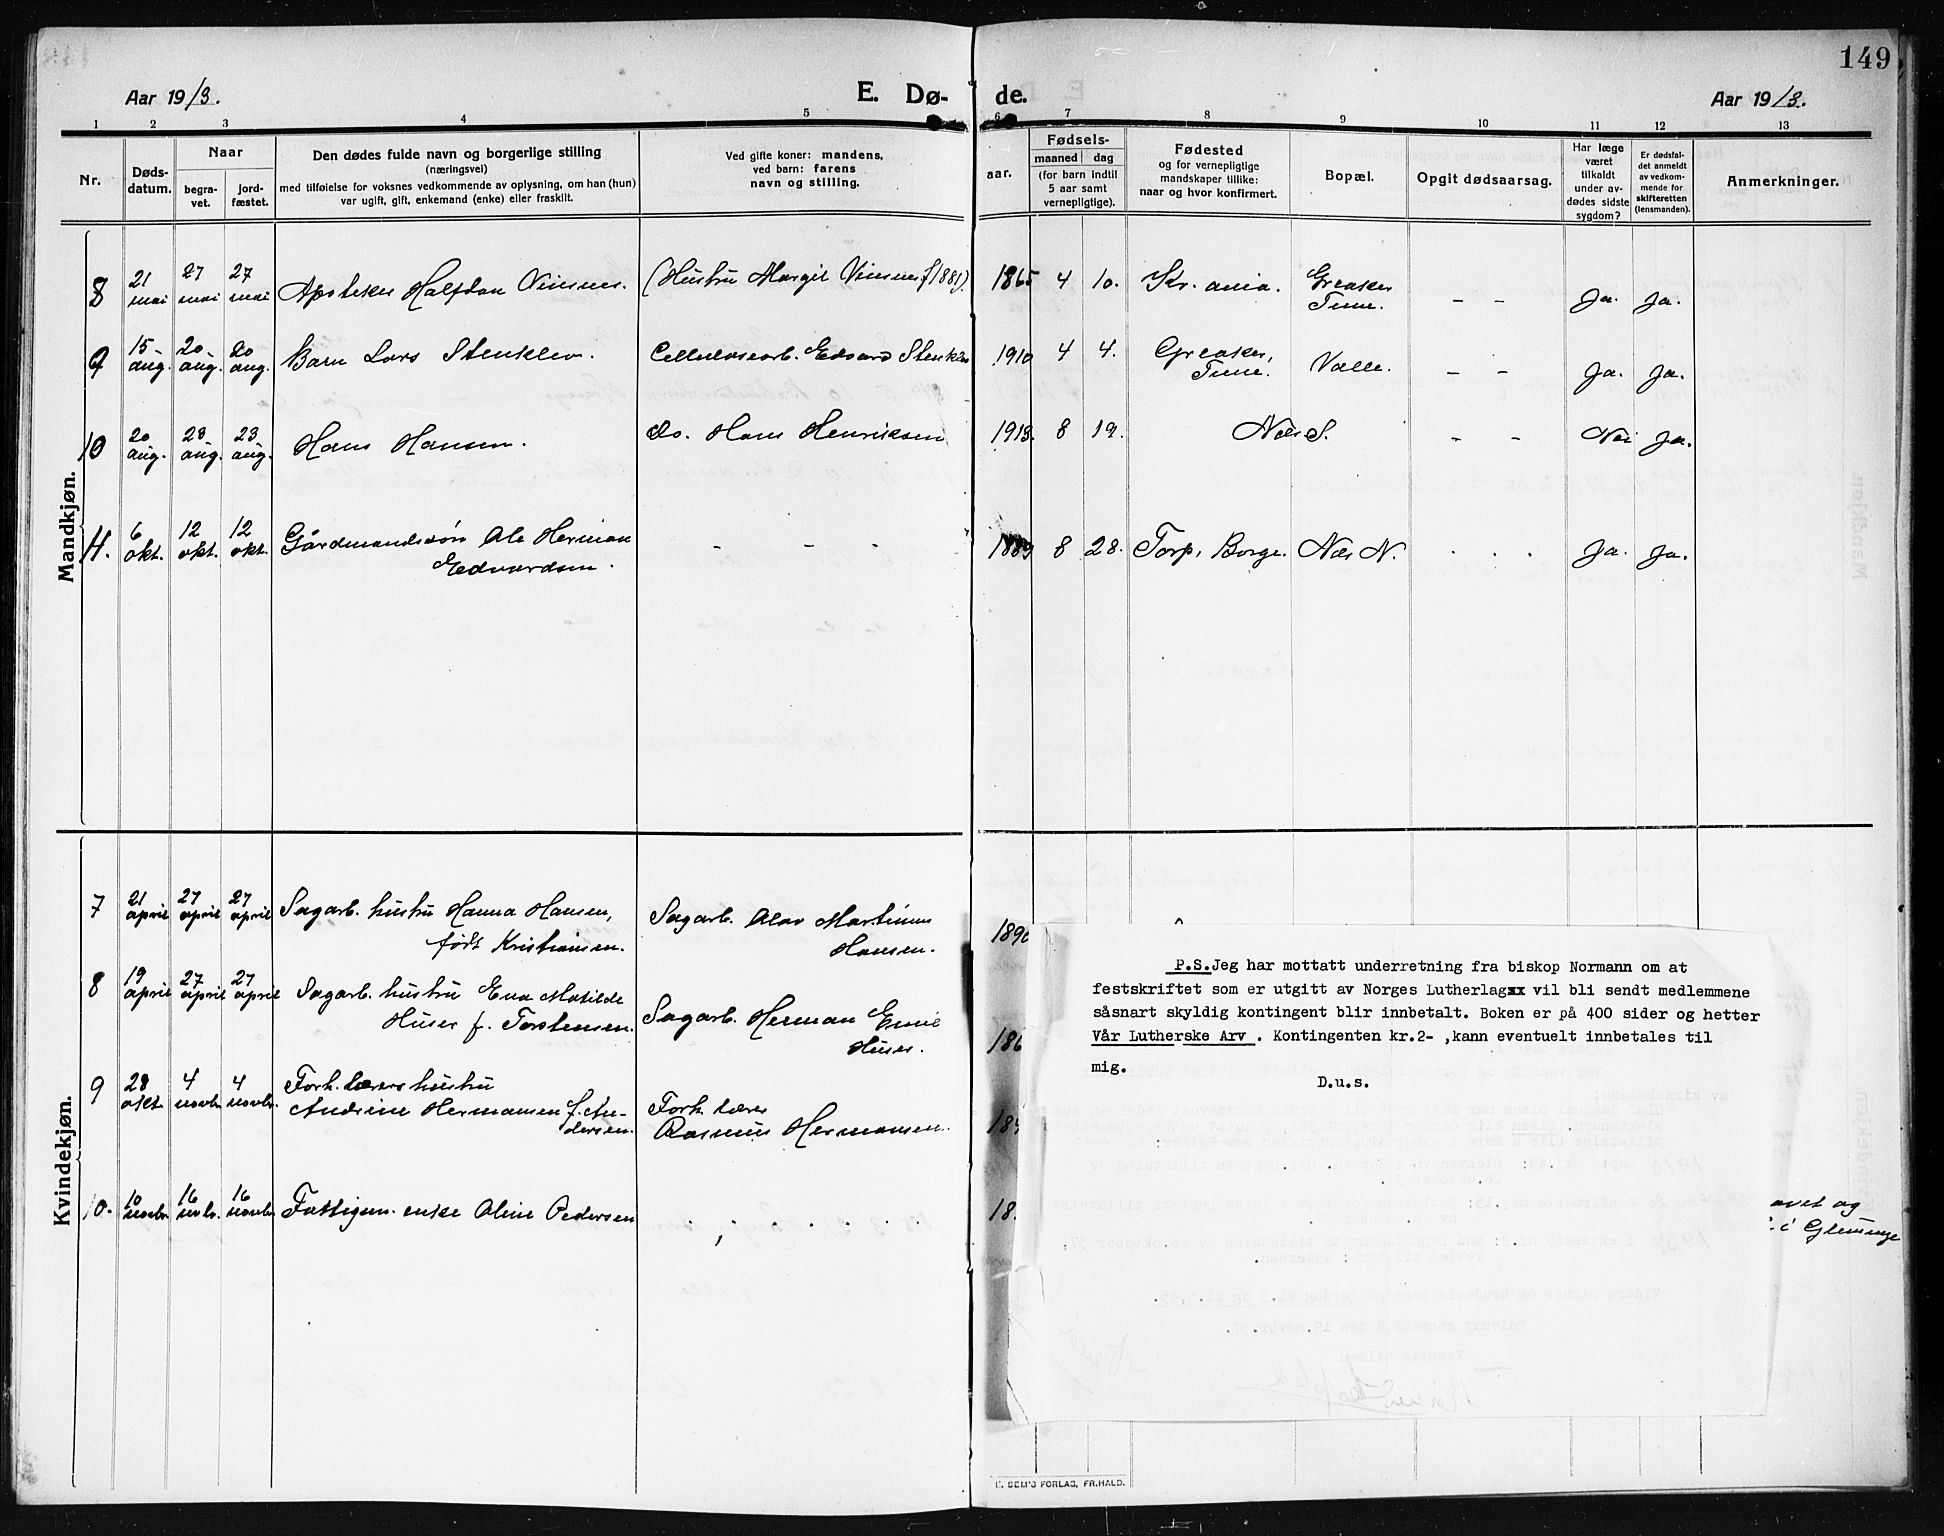 149
Aar 1913.
E. Dø-
de.
Aar 1913.
1 2 3 4 5 6 7 8 9 10 11 12 13
Nr.
Døds-
datum.
Naar
begra-
vet.
jord-
fæstet.
Den dødes fulde navn og borgerlige stilling
(næringsvei)
med tilføielse for voksnes vedkommende av oplysning, om han (hun)
var ugift, gift, enkemand (enke) eller fraskilt.
Ved gifte koner: mandens,
ved barn: farens
navn og stilling.
aar.
Fødsels-
maaned dag
(for barn indtil
5 aar samt
vernepligtige).
Fødested
og for vernepligtige
mandskaper tillike:
naar og hvor konfirmert.
Bopæl.
Opgit dødsaarsag.
Har læge
været
tilkaldt
under av-
dødes sidste
sygdom?
Er dødsfal-
det anmeldt
av vedkom-
mende for
skifteretten
(lensmanden).
Anmerkninger.
Mandkjøn.
8 21 mai 27 mai 27 mai Apoteker Halfdan Vinsnes. (Hustru Margit Vinsnes f 1881). 1865 4 10. Kr.ania. Greaker Tune. - - Ja. Ja.
9 15- aug. 20- aug. 20 aug. Barn Lars Stenklev. Cellulosearb. Edvard Stenklev 1910 4 4. Greaker, Tune. Valle. - - Ja. Ja.
10 20 aug. 23 aug. 23 aug. Hans Hansen. do. Hans Henriksen 1913. 8 19. Næs S. - - Nei Ja.
11. 6 okt. 12 okt. 12 okt. Gårdmandssøn Ole Herman
Edvardsen. - - - 1889 8 28. Torp, Borge. Næs N. . . . Ja. Ja.
Kvindekjøn.
7 21 april 27 april 27 april Sagarb. hustru Hanna Hansen,
født Kristiansen. Sagarb. Olav Martinius
Hansen. 1890
8 19 april 27 april 27 april Sagarb. hustru Eva Matilde
Huser f. Torstensen. Sagarb. Herman Emil
Huser. 186
9 28 okt. 4 novbr. 4 novbr. Forh. lærers hustru
Andrine Hermansen f. An-
dersen. Forh. lærer
Rasmus Hermansen. 18
10. 10 novbr. 16 novbr. 16 novbr. Fattigem. enke Oline Pedersen . . . . . . 18
avet og
i Glemminge
P.S.Jeg har mottatt underretning fra biskop Normann om at
festskriftet som er utgitt av Norges Lutherlagxx vil bli sendt medlemmene
såsnart skyldig kontingent blir innbetalt. Boken er på 400 sider og hetter
Vår Lutherske Arv . Kontingenten kr.2- ,kann eventuelt innbetales til
mig.
D.u.s.
SEM'S FORLAG, FR.HALD.